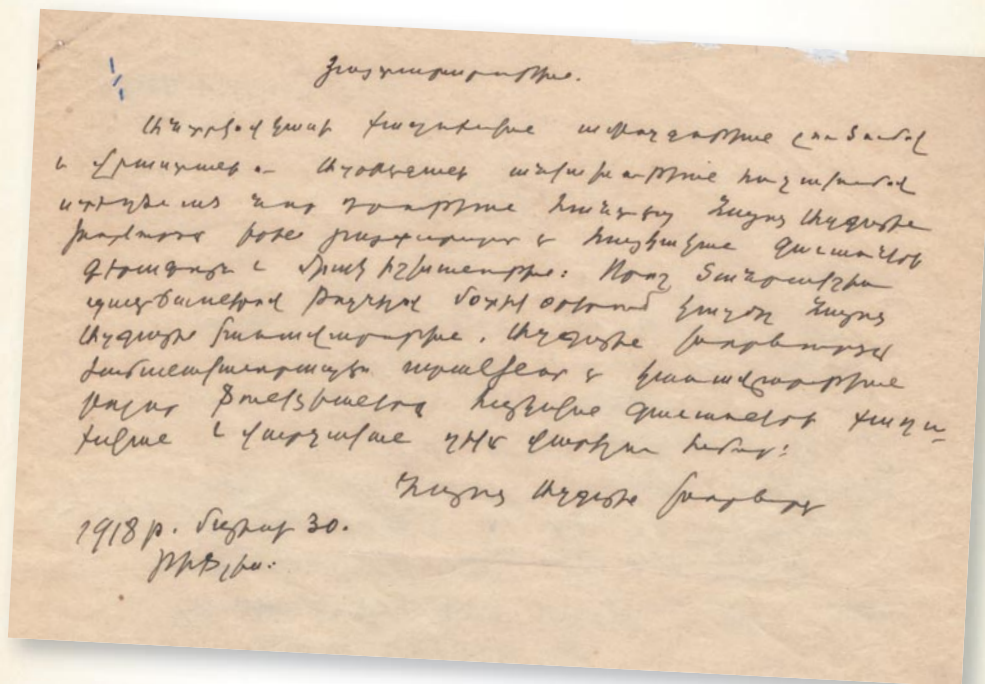 Յայտարարութիւն.
Անդրկովկասի քաղաքական ամբողջութեան լուծումով
և Վրաստանի ու Ադրբեջանի անկախութեան հռչակումով
ստեղծւած նոր դրութեան հանդէպ Հայոց Ազգային
Խորհուրդը իրեն յայտարարում է հայկական գաւառների
գերագոյն և միակ իշխանութիւն: Որոշ ծանրակշիռ
պատճառներով թողնելով մօտիկ օրերում կազմել Հայոց
Ազգային կառավարութիւն, Ազգային խորհուրդը
ժամանակաւորապէս ստանձնում է կառավարութեան
բոլոր ֆունկցիաները հայկական գաւառների քաղա-
քական և վարչական ղեկը վարելու համար:
Հայոց Ազգային Խորհուրդ
1918 թ. մայիսի 30.
Թիֆլիս: